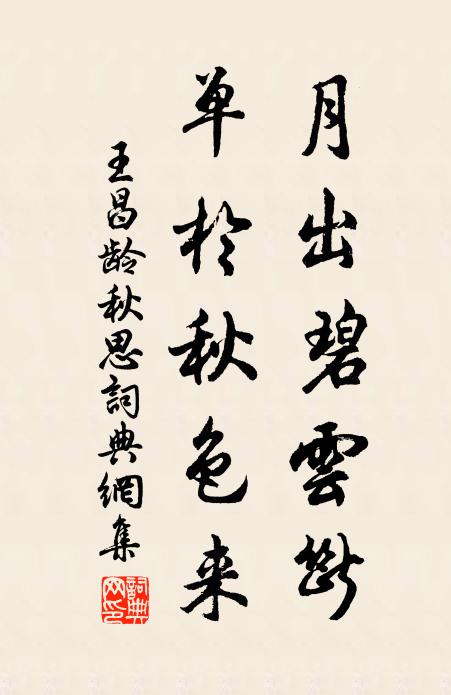 月出碧雲斷
单於秋色来
王昌龄秋思詞典網集
詞典网印